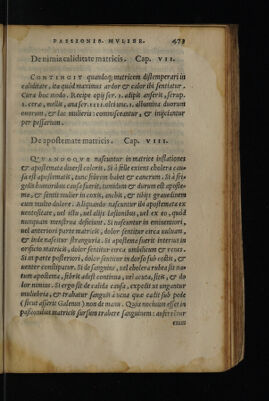 PASSIONIB. MVLIER. 473
De nimia caliditate matricis. Cap. VII.
CONTINGIT quandoq; matricem distemperari in
caliditate, ita quòd maximus ardor & calor ibi sentiatur.
Cura hoc modo. Recipe opij scr. 1. adipis anserit, scrup.
1. ceræ, mellis, ana scr. 4. olei unc. 1. albumina duorum
ouorum, & lac mulieris: commisceantur, & iniiciantur
per pessarium.
De apostemate matricis. Cap. VIII.
QVANDOQVE nascuntur in matrice inflationes
& apostemata diuersi coloris. Si à felle extens cholera cau-
sa est apostematis, tunc febrem habet & cancrum. Si à fri-
gidis humoribus causa fuerit, tumidum & durum est aposte-
ma, & sentit mulier in coxis, anchis, & tibijs grauedinem
cum maiore dolore. Aliquando nascuntur ibi apostemata ex
uentositate, uel ictu, uel alijs læsionibus, uel ex eo, quòd
nunquam menstrua defecerunt. Si nascuntur in anteriori,
uel anteriori parte matricis, dolor sentitur circa uuluam,
& inde nascitur stranguria. Si apostema fuerit internis in
orificio matricis, dolor sentitur circa umbilicum & renes.
Si in parte posteriori, dolor sentitur in dorso sub costis, &
uenter constipatur. Si de sanguine, uel cholera rubea sit na-
tum apostema, febris adest continua, uel acuta, sitis, & do-
lor nimius. Si ergo sit de calida causa, expedit in unguine
muliebria, & trahatur sanguis à uena quæ exit sub pede
(sicut asserit Galenus) non de manu. Quia nociuum esset in
passionibus matricis sursum trahere sanguinem: auferretur